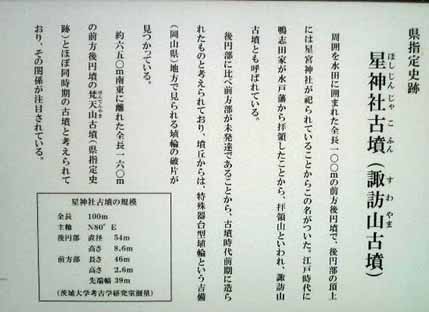 県指定史跡
ほしじんじゃこふん すわやま
星神社古墳(諏訪山古墳)
周囲を水田に囲まれた全長一〇〇mの前方後円墳で、後円部の頂上
には星宮神社が祀られていることからこの名がついた。江戸時代に
鴨志田家が水戸藩から拝領したことから、拝領山といわれ、諏訪山
古墳とも呼ばれている。
後円部に比べ前方部が未発達であることから、古墳時代前期に造ら
れたものと考えられており、墳丘からは、特殊器台型埴輪という吉備
(岡山県)地方で見られる埴輪の破片が
見つかっている。
約六五〇m南東に離れた全長一六〇m
の前方後円墳の梵天山古墳(県指定史
ぼんてんやま
跡)とほぼ同時期の古墳と考えられて
おり、その関係が注目されている。
星神社古墳の規模
全長 100m
主軸 N80°E
後円部 直径 54m
高さ 8.6m
前方部 長さ 46m
高さ 2.6m
先端幅 39m
(茨城大学考古学研究室測量)